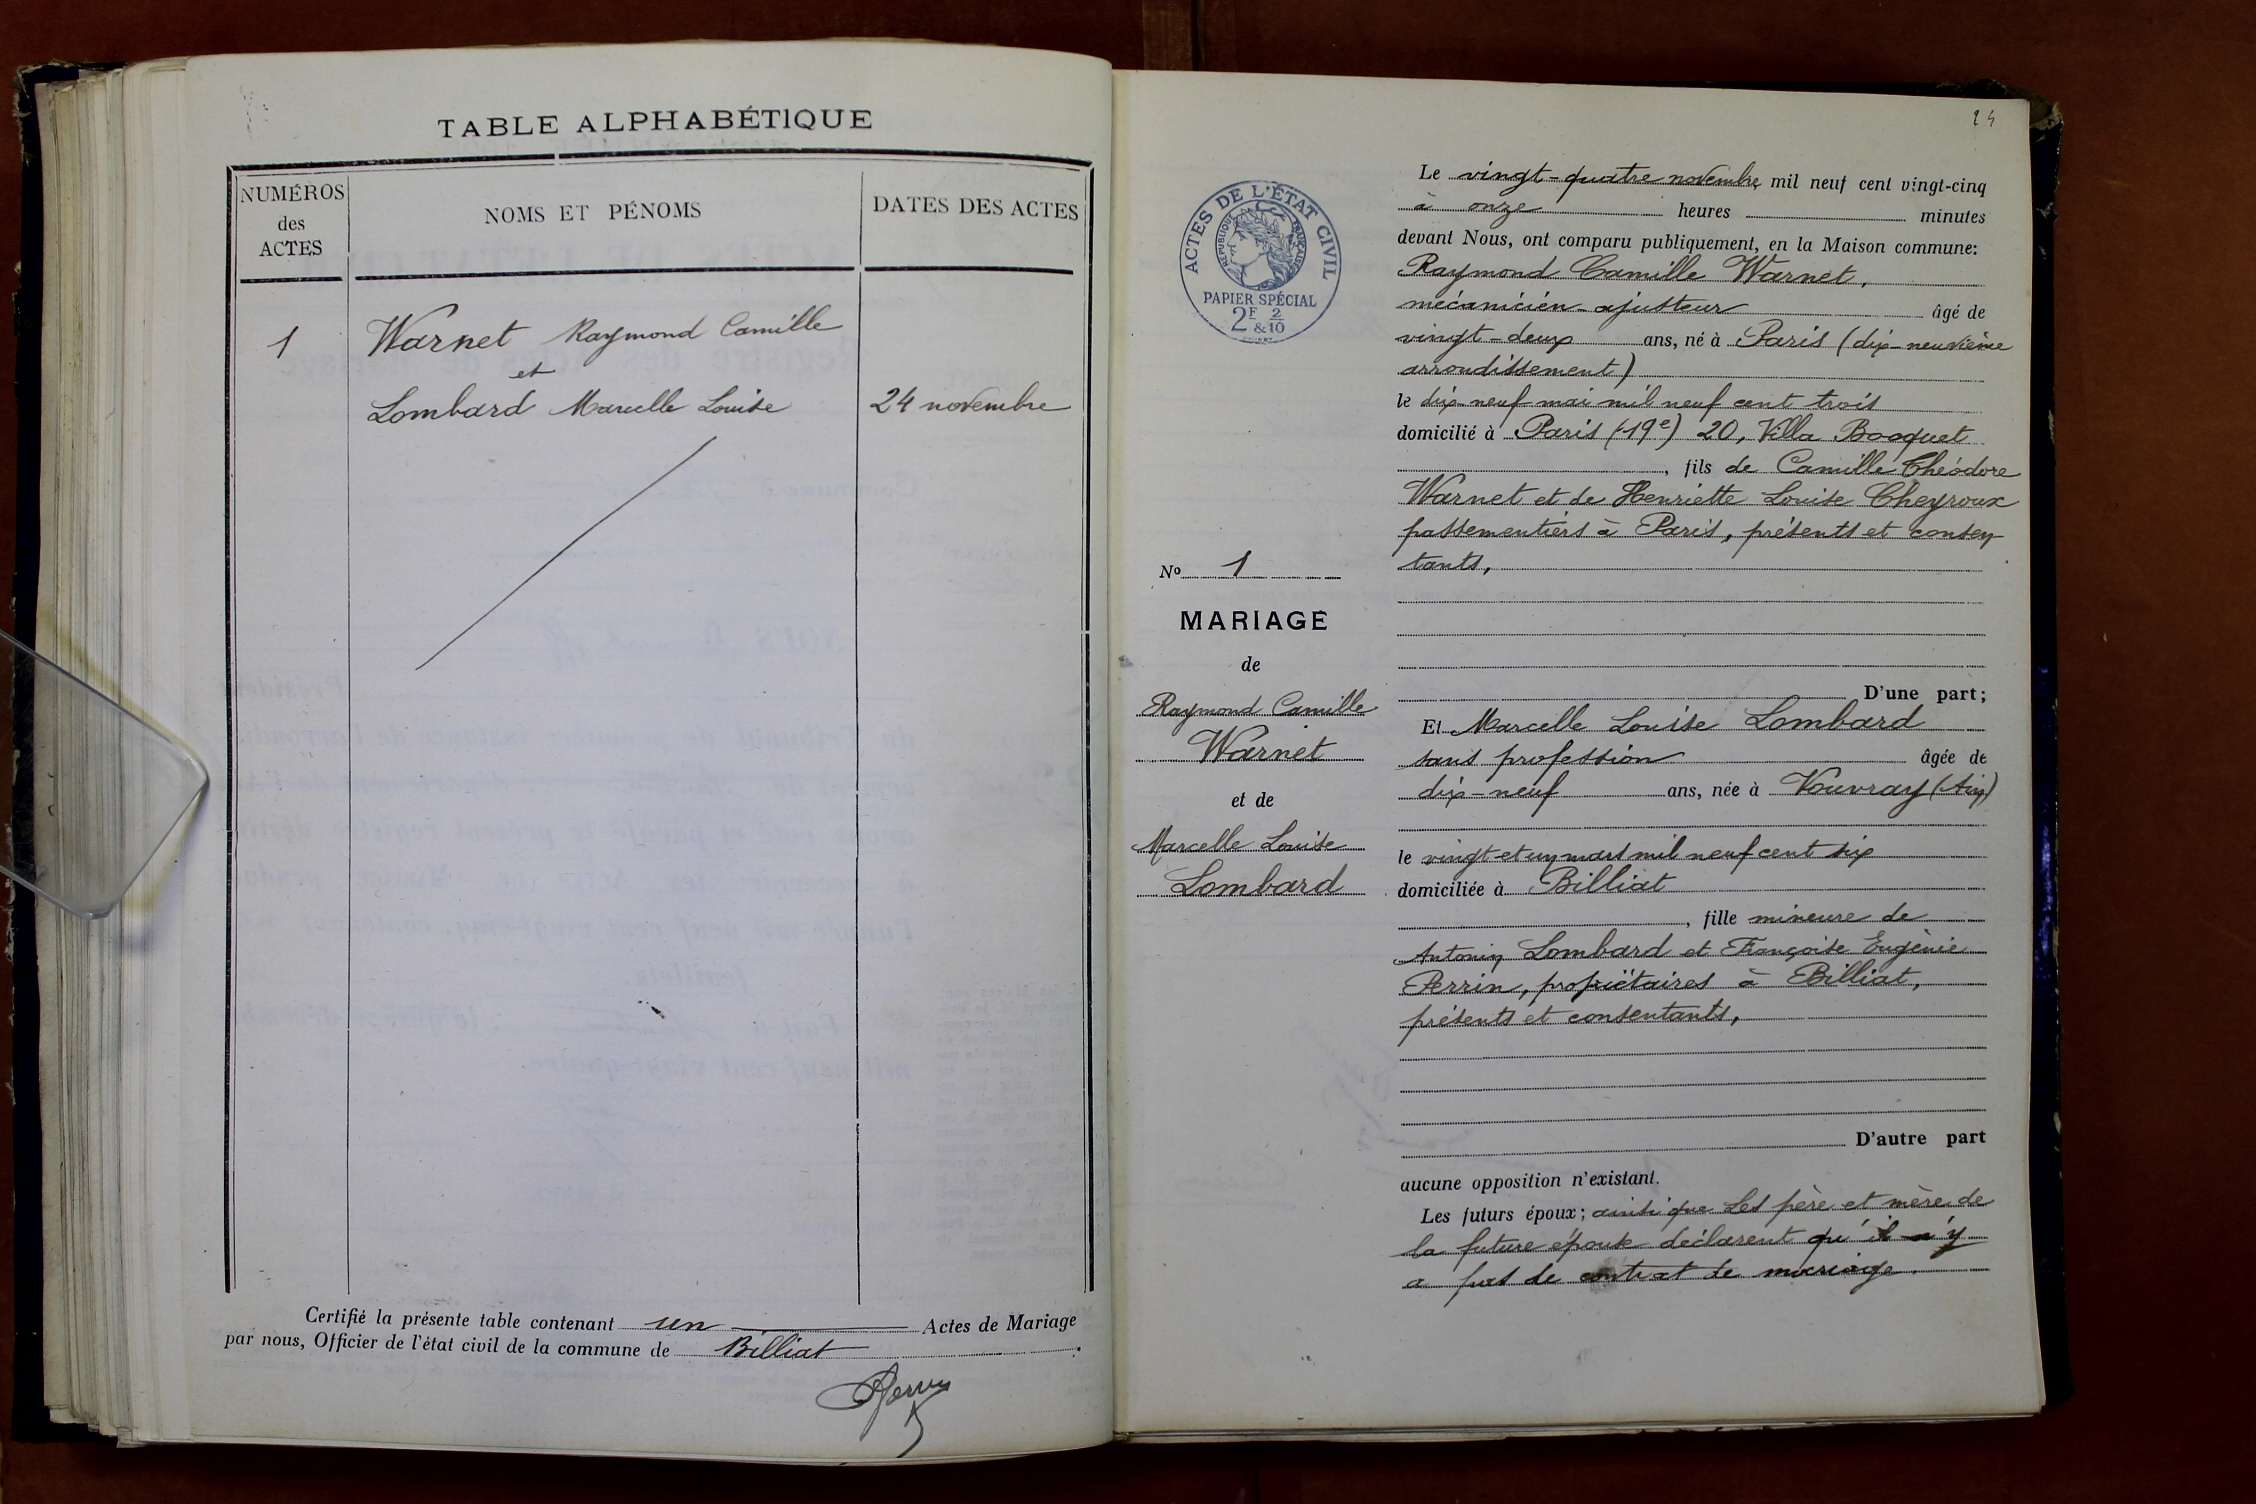 TABLE ALPHABÉTIQUE
NUMÉROS
des
ACTES
NOMS ET PÉNOMS
DATES DES ACTES
1
Warnet Raymond Camille
et
Lombard Marcelle Louise
24 novembre
Certifié la présente table contenant un Actes de Mariage
par nous, Officier de l'état civil de la commune de Billiat.
24
ACTES DE L'ÉTAT CIVIL
RÉPUBLIQUE FRANÇAISE
PAPIER SPÉCIAL
2F 2
& 10
No 1
MARIAGE
de
Raymond Camille
Warnet
et de
Marcelle Louise
Lombard
Le vingt-quatre novembre mil neuf cent vingt-cinq
à onze heures minutes
devant Nous, ont comparu publiquement, en la Maison commune:
Raymond Camille Warnet,
mécanicien-ajusteur âgé de
vingt-deux ans, né à Paris (dix-neuvième
arrondissement)
le dix-neuf mai mil neuf cent trois
domicilié à Paris (19e) 20, Villa Bocquet
, fils de Camille Théodore
Warnet et de Henriette Louise Cheyroux
passementiers à Paris, présents et consen
tants,
D'une part;
Et Marcelle Louise Lombard
sans profession âgée de
dix-neuf ans, née à Vouvray (Ain)
le vingt-et-un mars mil neuf cent six
domiciliée à Billiat
, fille mineure de
Antonin Lombard et Françoise Eugénie
Perrin, propriétaires à Billiat,
présents et consentants,
D'autre part
aucune opposition n'existant.
Les futurs époux; ainsi que les père et mère de
la future épouse déclarent qu'il n'y
a pas de contrat de mariage.